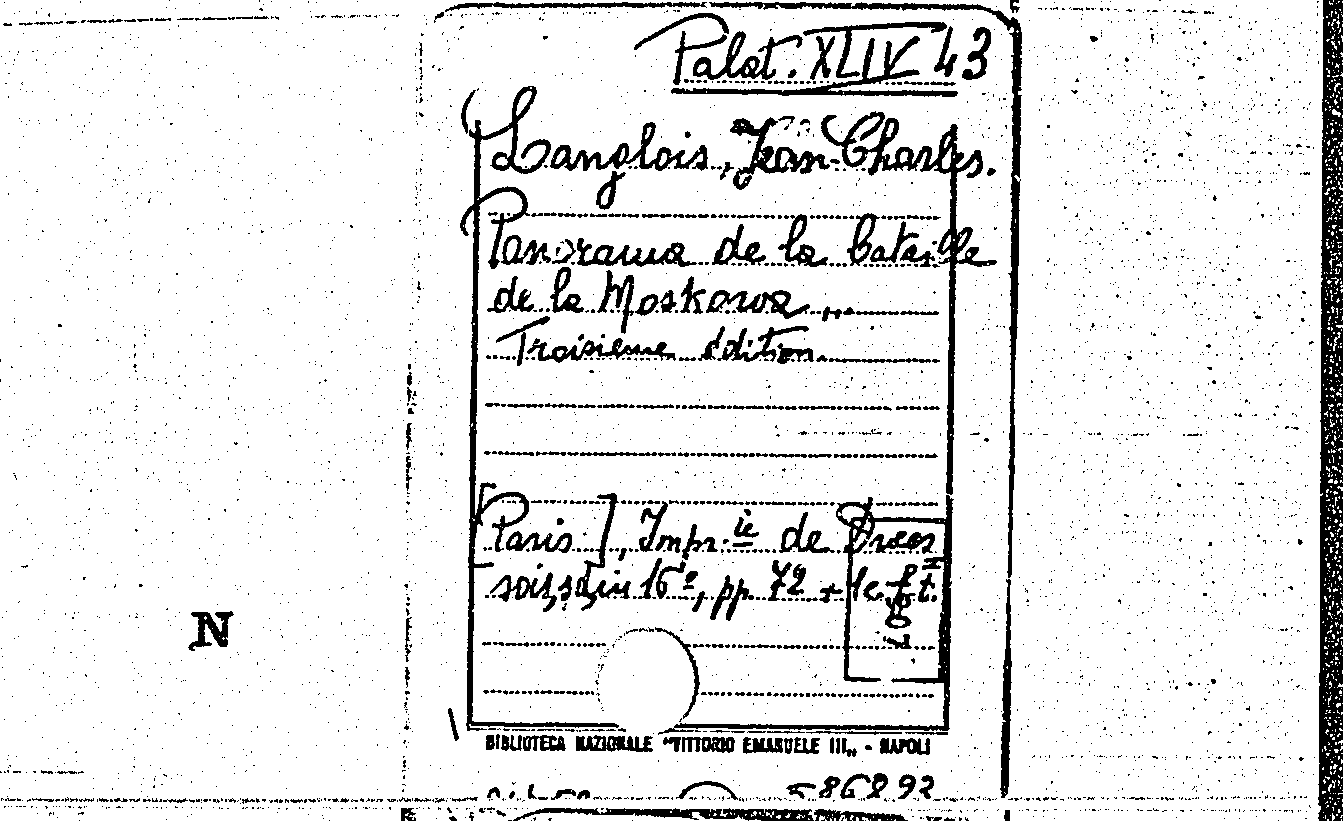 Palat. XLIV 43
Langlois, Jean-Charles.
Panorama de la bataille
de la Moskowa ...
Troisieme édition
[Paris], Impr.ie de
in 16º, pp. 72 + 1 c. f. t.
N
BIBLIOTECA NAZIONALE "VITTORIO EMANUELE III„ - NAPOLI